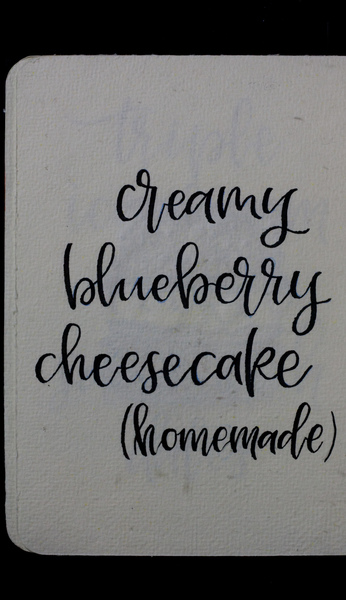 creamy
blueberry
cheesecake
(homemade)